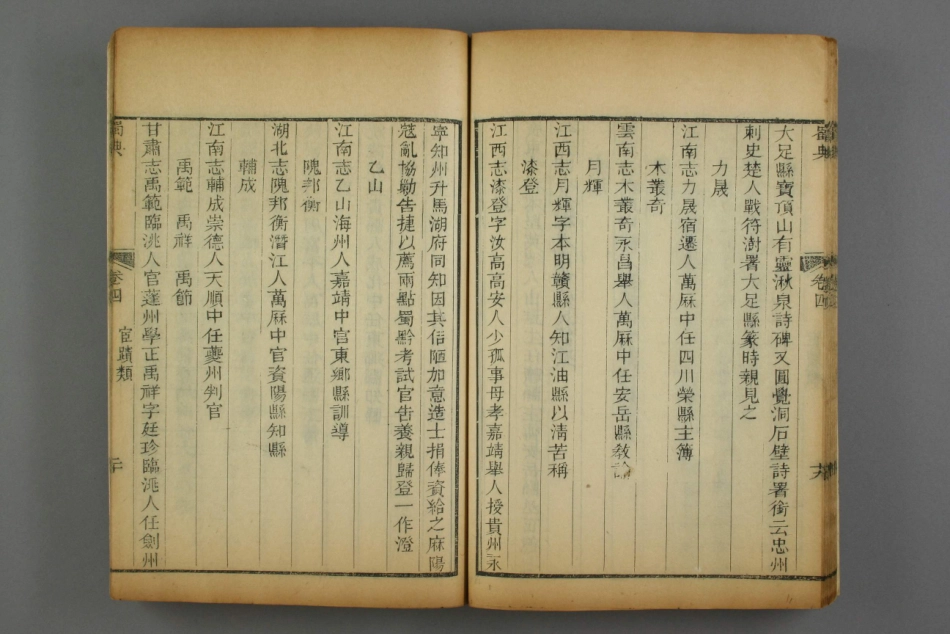 大足縣寶頂山有靈湫泉詩碑又圓覺洞石壁詩署銜云忠州
刺史楚人戰符澍署大足縣篆時親見之
力晟
江南志力晟宿遷人萬厤中任四川榮縣主簿
木叢奇
雲南志木叢奇永昌舉人萬厤中任安岳縣敎諭
月輝
江西志月輝字本明贛縣人知江油縣以淸苦稱
漆登
江西志漆登字汝高高安人少孤事母孝嘉靖舉人授貴州永
蜀典
卷四
寧知州升馬湖府同知因其俗陋加意造士捐俸資給之麻陽
寇亂協勦告捷以薦兩點蜀黔考試官告養親歸登一作澄
乙山
江南志乙山海州人嘉靖中官東鄉縣訓導
隗邦衡
湖北志隗邦衡潛江人萬厤中官資陽縣知縣
輔成
江南志輔成崇德人天順中任夔州判官
禹範 禹祥 禹節
甘肅志禹範臨洮人官蓬州學正禹祥字廷珍臨洮人任劍州
蜀典
卷四
宦蹟類